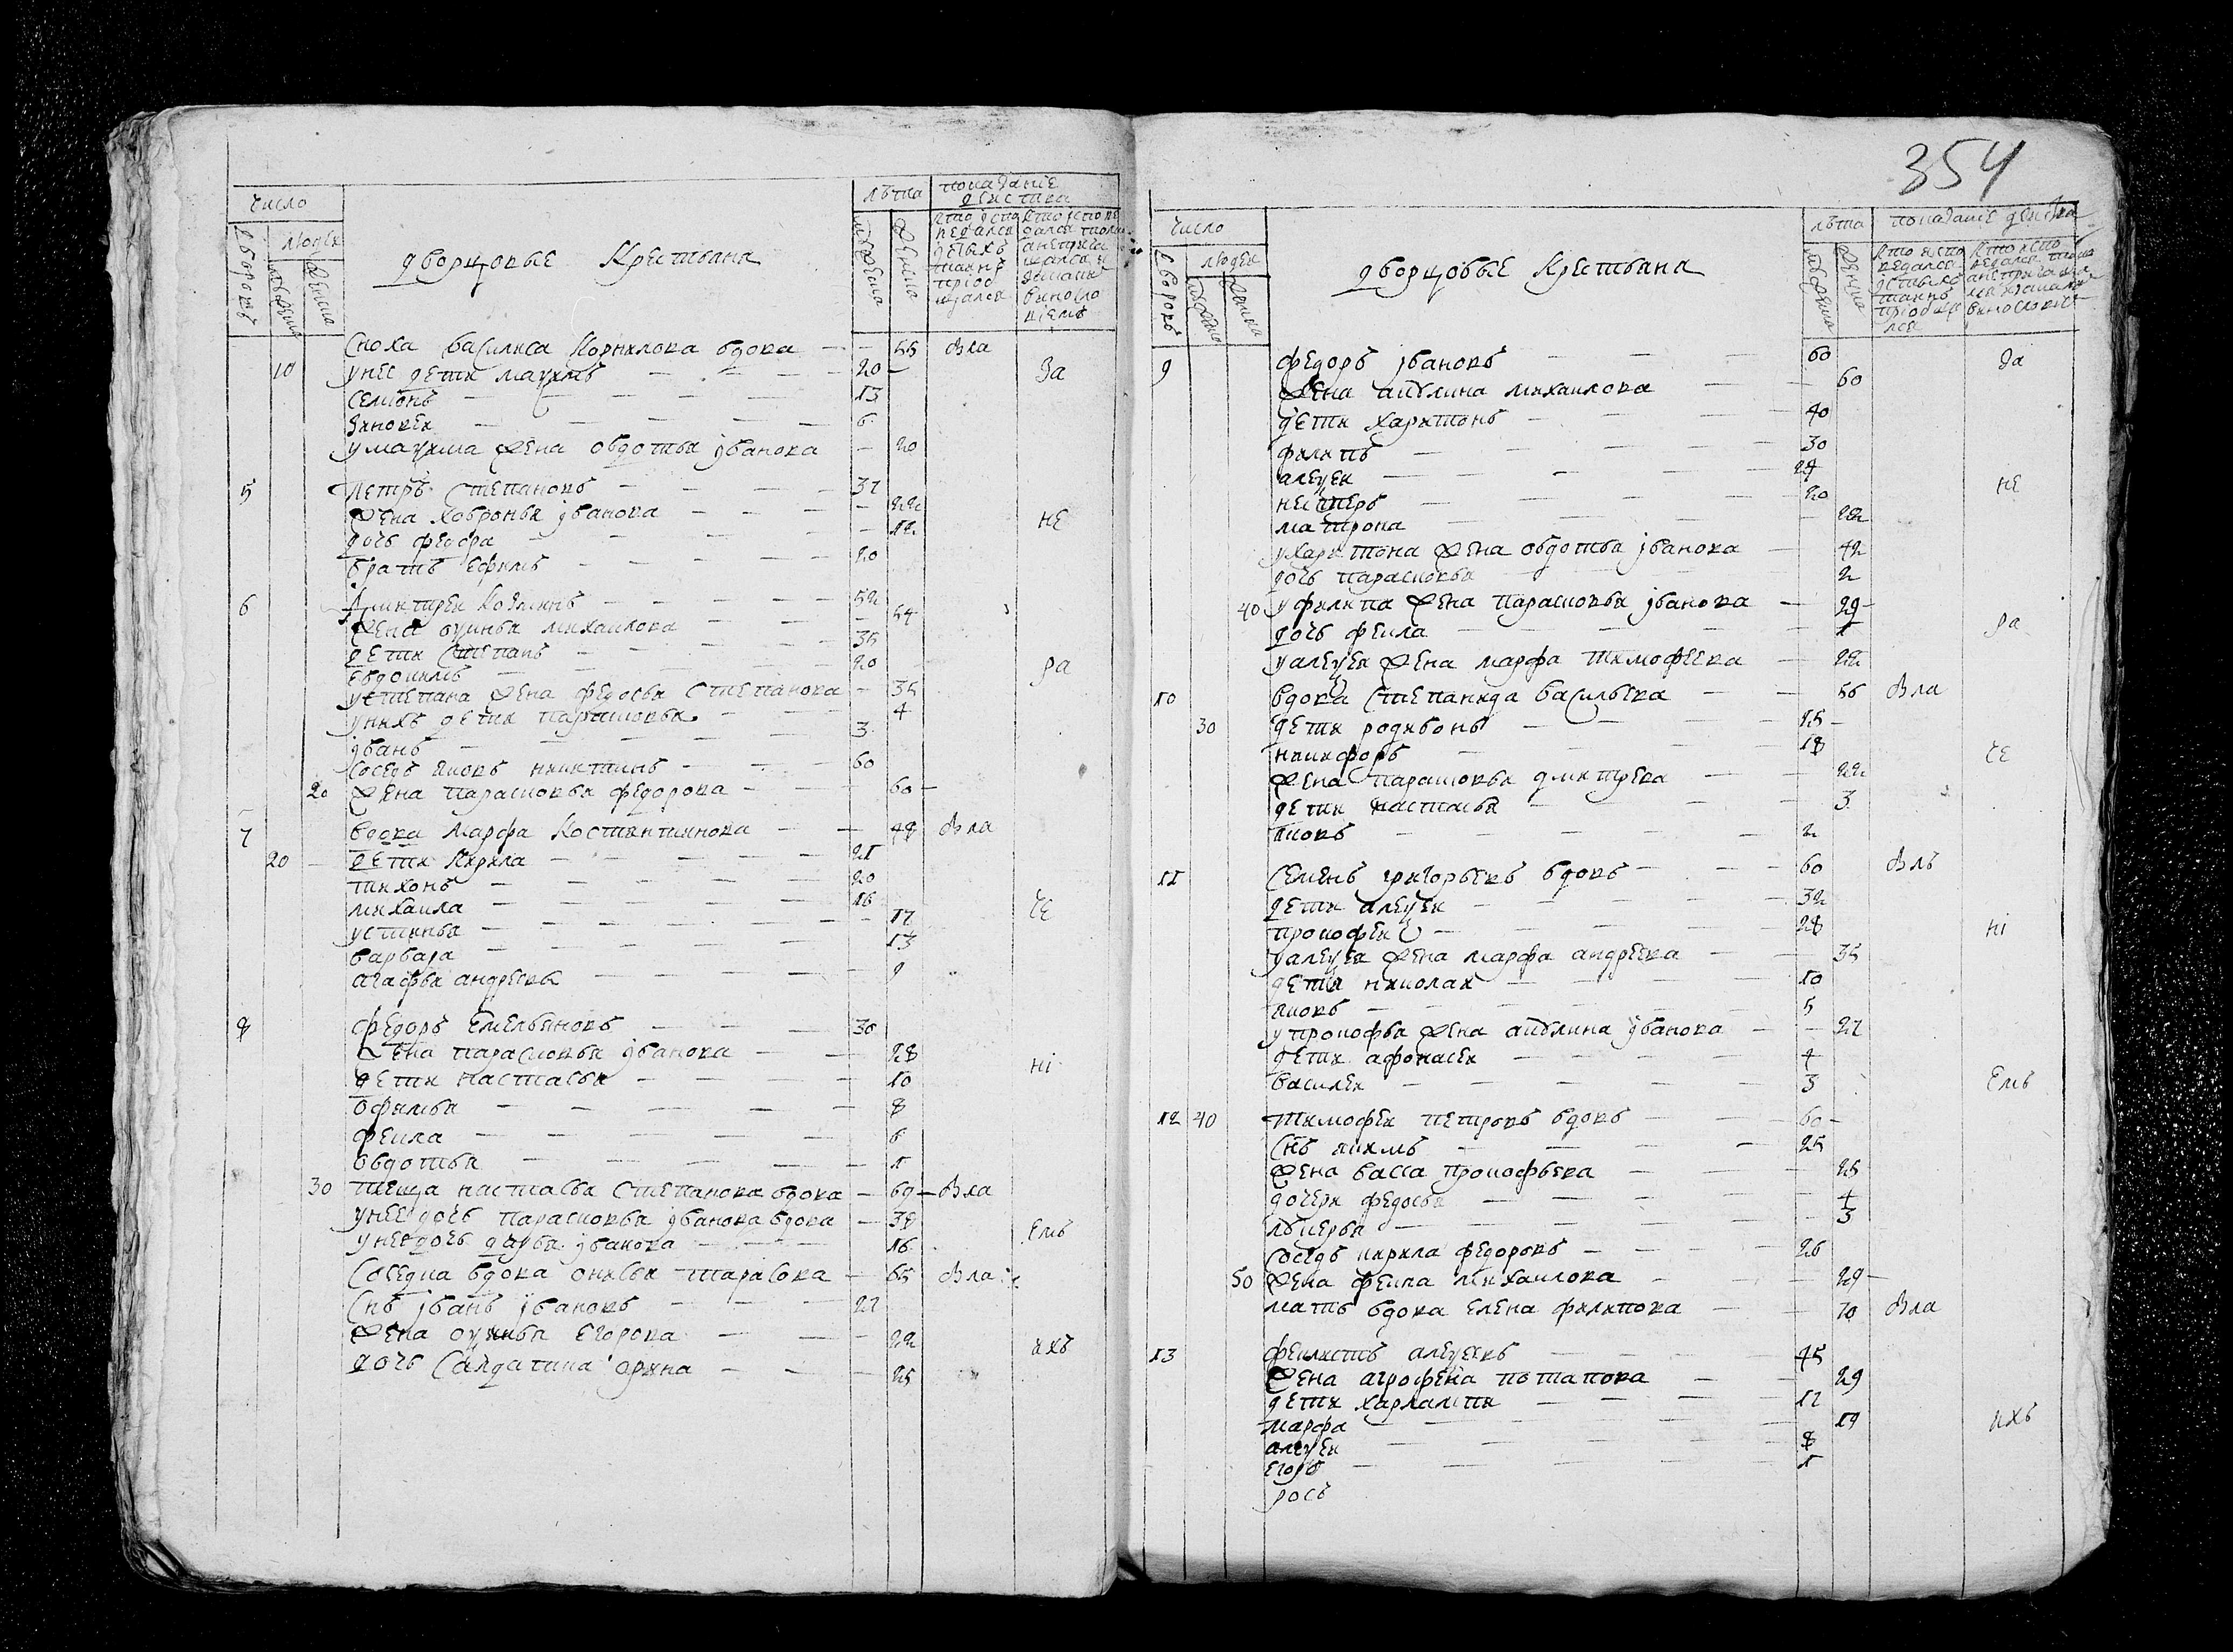 число
дворцовые крестьяна
лѣта
показаніе действа
дворовъ
людей
мужеска
женска
мужеска
женска
сноха василиса корнилова вдова — 55 Вла
10 унее дети мауимъ — 20 За
семіонъ — 13
зиновеи — 6
умауима жена овдотья iванова — 20
5 Петръ степановъ — 31
жена ховронья iванова — 22 не
дочь федора — 12
братъ ефимъ — 20
6 Дмитреи козминъ — 52
жена оуинья михаилова — 54
дети степанъ — 35
евдокимъ — 20 ра
устепана жена федосья степанова — 35
унихъ дети парасковья — 4
iванъ — 3
соседъ яковъ никитинъ — 60
20 жена парасковья федорова — 60
7 вдова марфа костянтинова — 48 Вла
20 дети кирила — 21
тихонъ — 20
михаила — 16 че
устинья — 17
варвара — 13
агафья андреева — 9
8 федоръ емельяновъ — 30
жена парасковья iванова — 28 нi
дети настасья — 10
офимья — 8
фекла — 6
овдотья — 1
30 теща настасья степанова вдова — 69 Вла
унее дочь парасковья iванова вдова — 38 емъ
унее дочь дарья iванова — 16
соседка вдова онисья тарасова — 65 Вла
снъ iванъ iвановъ — 21
жена оуинья егорова — 22 ихъ
дочь салдатика орина — 25
354
число
дворцовые крестьяна
лѣта
показаніе действа
дворовъ
людей
мужеска
женска
мужеска
женска
9 федоръ iвановъ — 60 За
жена акулина михаилова — 60
дети харитонъ — 40
филипъ — 30
алеуеи — 24
нестеръ — 20 не
матрона — 22
ухаритона жена овдотья iванова — 42
дочь парасковья — 2
40 уфилипа жена парасковья iванова — 29
дочь фекла — 1 ра
уалеуея жена марфа тимофеева — 22
10 вдова степанида васильева — 56 Вла
30 дети родивонъ — 25
никифоръ — 18 че
жена парасковья дмитрева — 22
дети настасья — 3
яковъ — 2
11 семенъ григорьевъ вдовъ — 60 Влъ
дети алеуеи — 32
прокофеи — 28 нi
уалеуея жена марфа андреева — 35
дети николаи — 10
яковъ — 5
упрокофья жена акулина iванова — 27
дети афонасеи — 4
василеи — 3 емъ
12 40 тимофеи петровъ вдовъ — 60
снъ якимъ — 25
жена васса прокофьева — 25
дочери федосья — 4
лукерья — 3
соседъ кирила федоровъ — 26
50 жена фекла михаилова — 29
мать вдова елена филипова — 70 Вла
13 феклистъ алеуеевъ — 45
жена агрофена потапова — 29
дети харлампи — 11
марфа — 19 ихъ
алеуеи — 8
егоръ — 1
рось